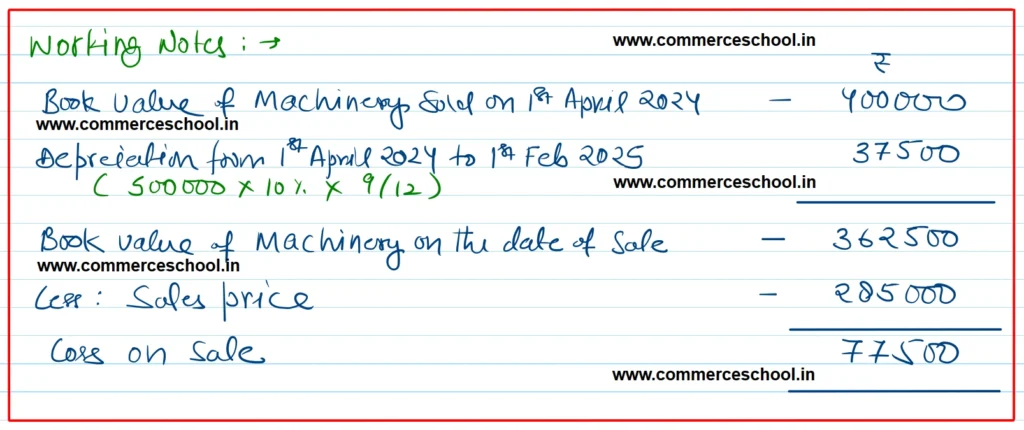 Working Notes : →
www.commerceschool.in
₹
Book Value of Machinery Sold on 1st April 2024 — 400000
www.commerceschool.in
Depreciation from 1st April 2024 to 1st Feb 2025 37500
( 500000 × 10 % × 9/12 )
www.commerceschool.in
Book value of Machinery on the date of Sale — 362500
www.commerceschool.in
Less : Sales price — 285000
Loss on Sale 77500
www.commerceschool.in